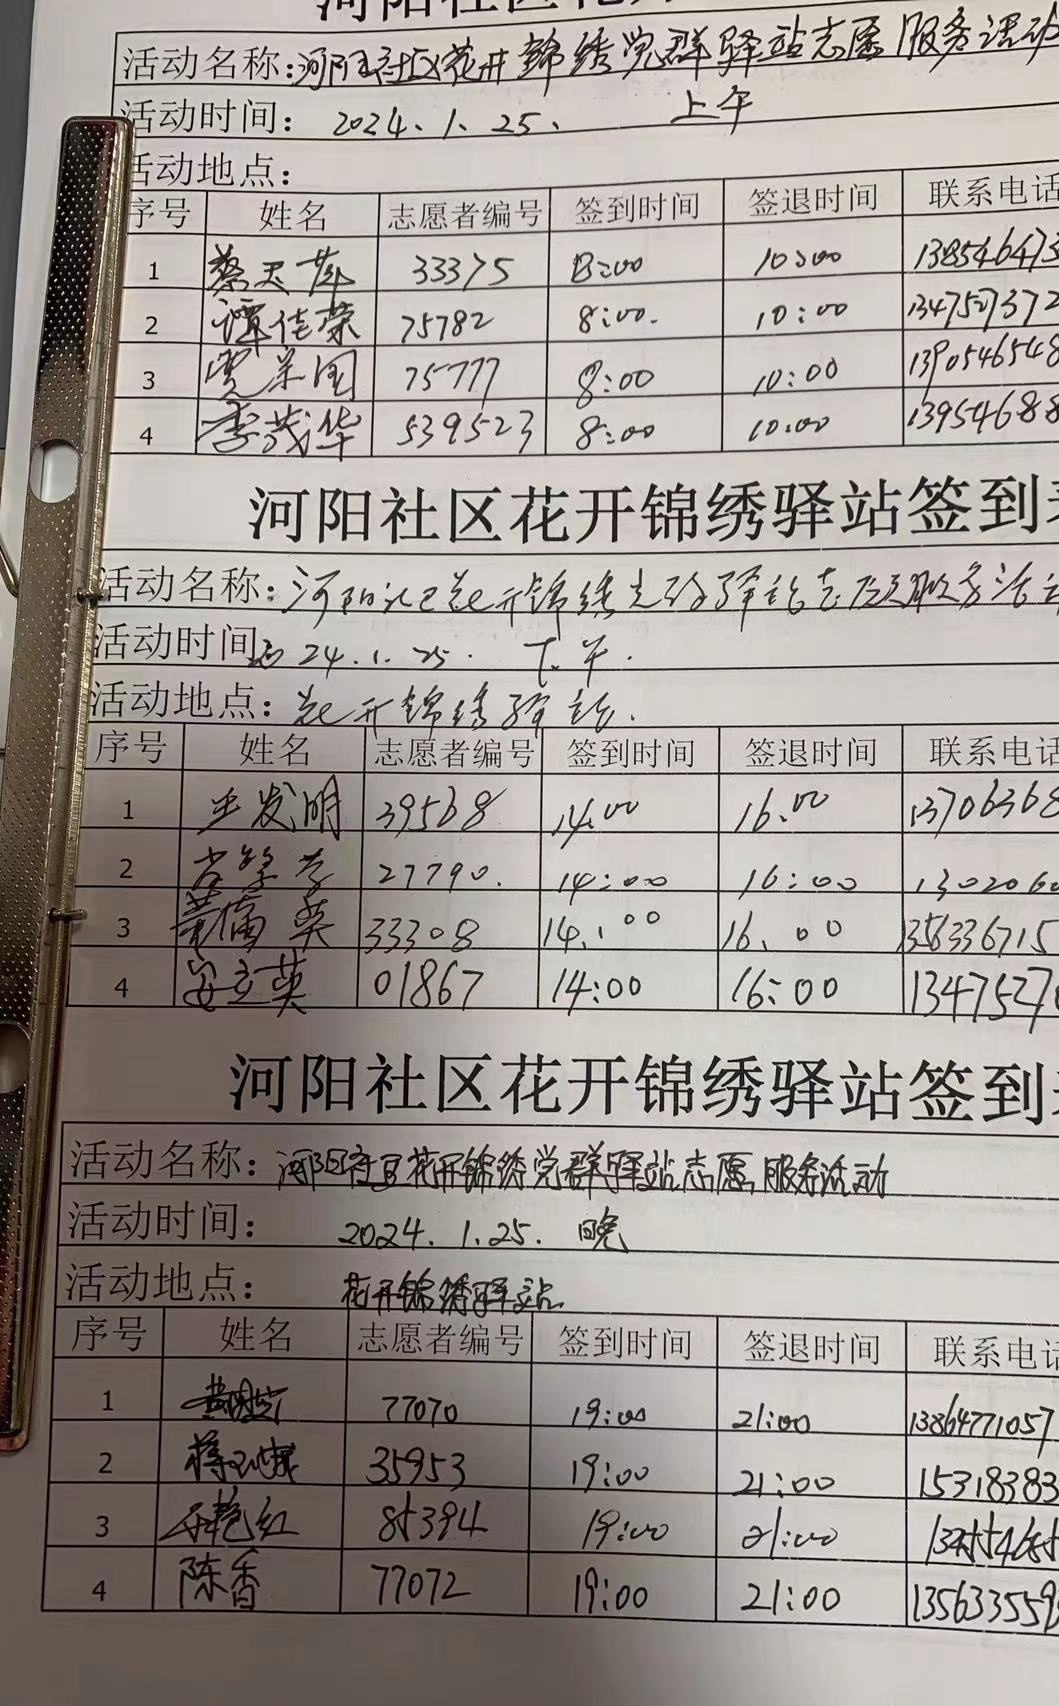 河阳社区花
活动名称:河阳社区花开锦绣党群驿站志愿服务活动
活动时间: 2024.1.25. 上午
活动地点:
序号 姓名 志愿者编号 签到时间 签退时间 联系电话
1 蔡天萍 33375 8:00 10:00 138546473
2 谭佳荣 75782 8:00. 10:00
3 贾荣国 75777 8:00 10:00 1390546548
4 李茂华 539523 8:00 10:00 13954688
河阳社区花开锦绣驿站签到
活动名称:河阳社区花开锦绣党群驿站志愿服务活
活动时间 2024.1.25. 下午.
活动地点: 花开锦绣驿站.
序号 姓名 志愿者编号 签到时间 签退时间 联系电话
1 发明 39568 14:00 16:00 13706368
2 27790. 14:00 16:00 1302060
3 董倩英 33308 14:00 16:00 135336715
4 安立英 01867 14:00 16:00 1347527
河阳社区花开锦绣驿站签到
活动名称:河阳社区花开锦绣党群驿站志愿服务活动
活动时间: 2024.1.25. 晚
活动地点: 花开锦绣驿站
序号 姓名 志愿者编号 签到时间 签退时间 联系电话
1 77070 19:00 21:00 13864771057
2 35953 19:00 21:00 15318383
3 艳红 85394 19:00 21:00
4 陈香 77072 19:00 21:00 135633559